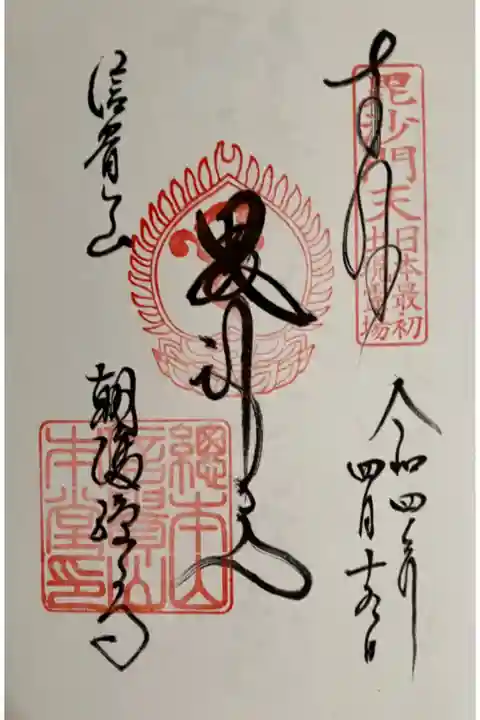 奉拝
毘沙門天
日本最初
出現霊場
令和四年
四月十日
毘沙門天
信貴山
朝護孫子寺
總本山
信貴山
本堂印